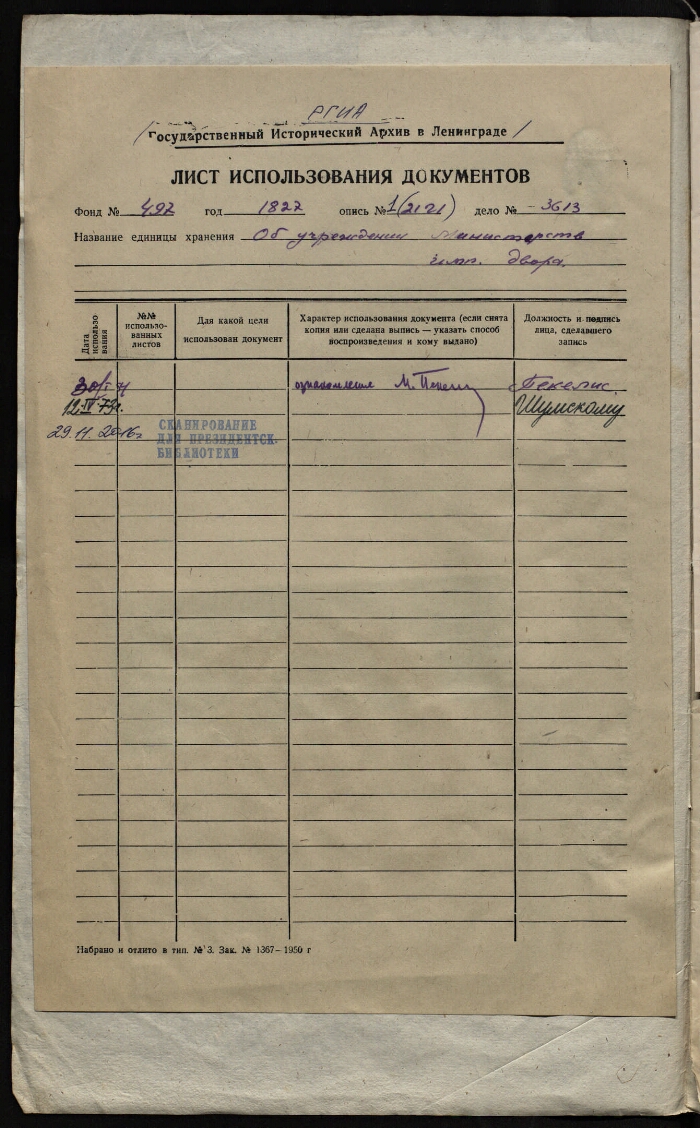 РГИА
/Государственный Исторический Архив в Ленинграде/
ЛИСТ ИСПОЛЬЗОВАНИЯ ДОКУМЕНТОВ
Фонд № 497 год 1827 опись № 1(2121) дело № 3613
Название единицы хранения Об учреждении Министерств
имп. двора.
Дата использования
№№ использованных листов
Для какой цели использован документ
Характер использования документа (если снята копия или сделана выпись — указать способ воспроизведения и кому выдано)
Должность и подпись лица, сделавшего запись
ознакомление М.
12.IV.73г. Шумскому
29.11.2016г СКАНИРОВАНИЕ
ДЛЯ ПРЕЗИДЕНТСК.
БИБЛИОТЕКИ
Набрано и отлито в тип. № 3. Зак. № 1367—1950 г